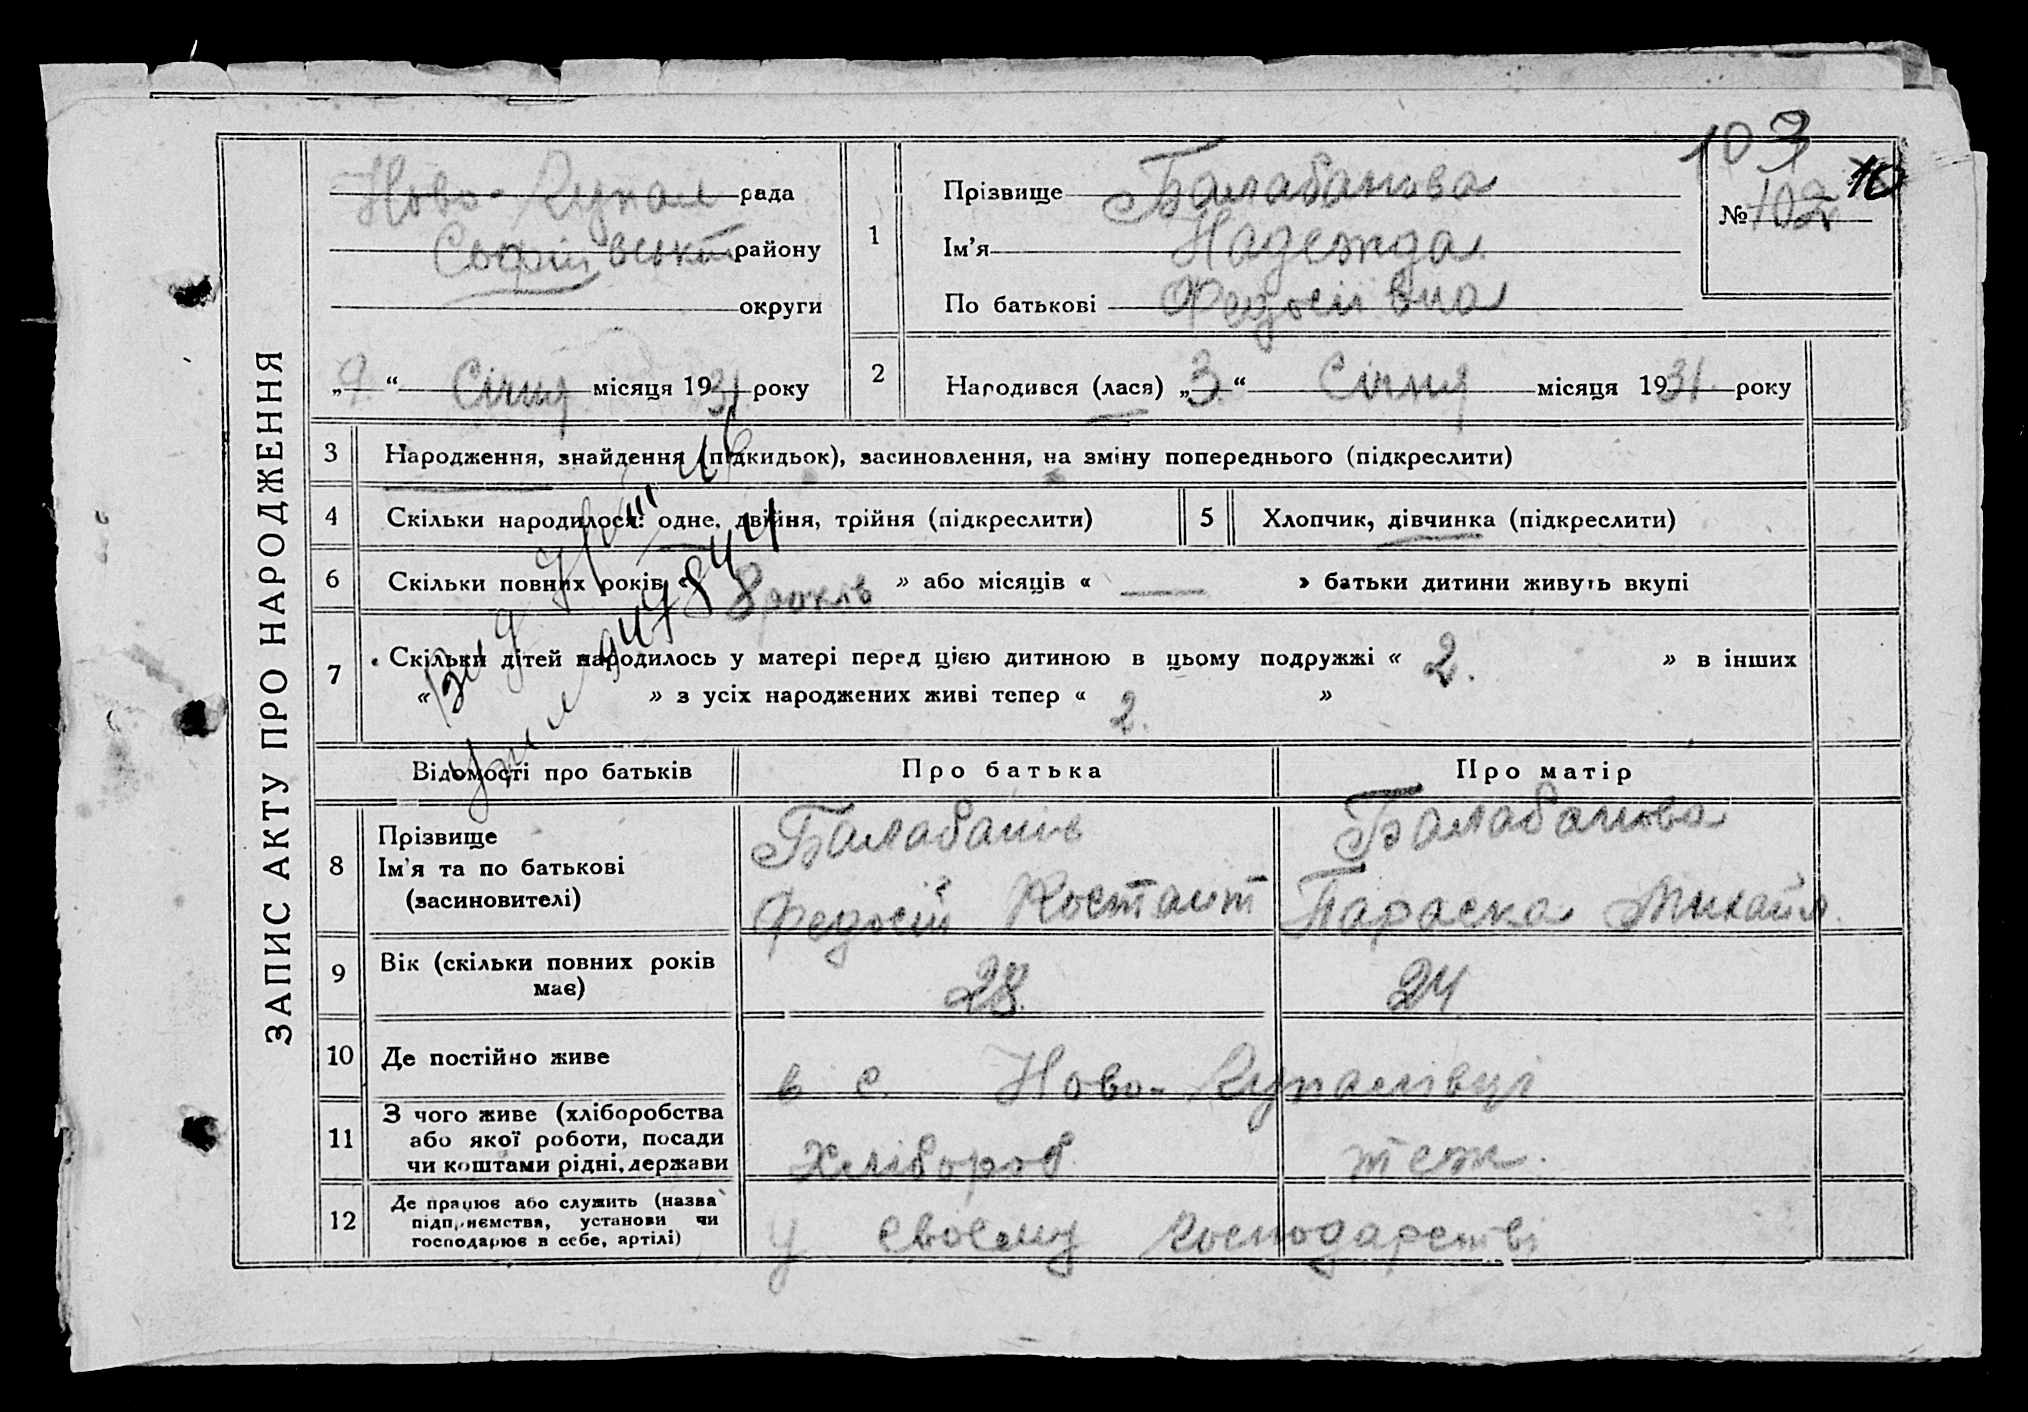 ЗАПИС АКТУ ПРО НАРОДЖЕННЯ
103
10
№ 102
Ново- рада
Софіївський району
округи
„9.“ Січня місяця 1931 року
1
Прізвище Балабанова
Ім'я Надежда
По батькові Федосіївна
2
Народився (лася) „3.“ Січня місяця 1931. року
3 Народження, знайдення (підкидьок), засиновлення, на зміну попереднього (підкреслити)
4 Скільки народилося: одне, двійня, трійня (підкреслити) 5 Хлопчик, дівчинка (підкреслити)
6 Скільки повних років « 8 років » або місяців « — » батьки дитини живуть вкупі
7 Скільки дітей народилось у матері перед цією дитиною в цьому подружжі « 2. » в інших
« » з усіх народжених живі тепер « 2. »
Відомості про батьків Про батька Про матір
8 Прізвище Балабанів Балабанова
Ім'я та по батькові Федосій Костант Параска Михайл.
(засиновителі)
9 Вік (скільки повних років має) 28. 24
10 Де постійно живе в с. Ново-
11 З чого живе (хліборобства або якої роботи, посади чи коштами рідні, держави Хлібороб теж.
12 Де працює або служить (назва підприємства, установи чи господарює в себе, артілі) у своєму господарстві